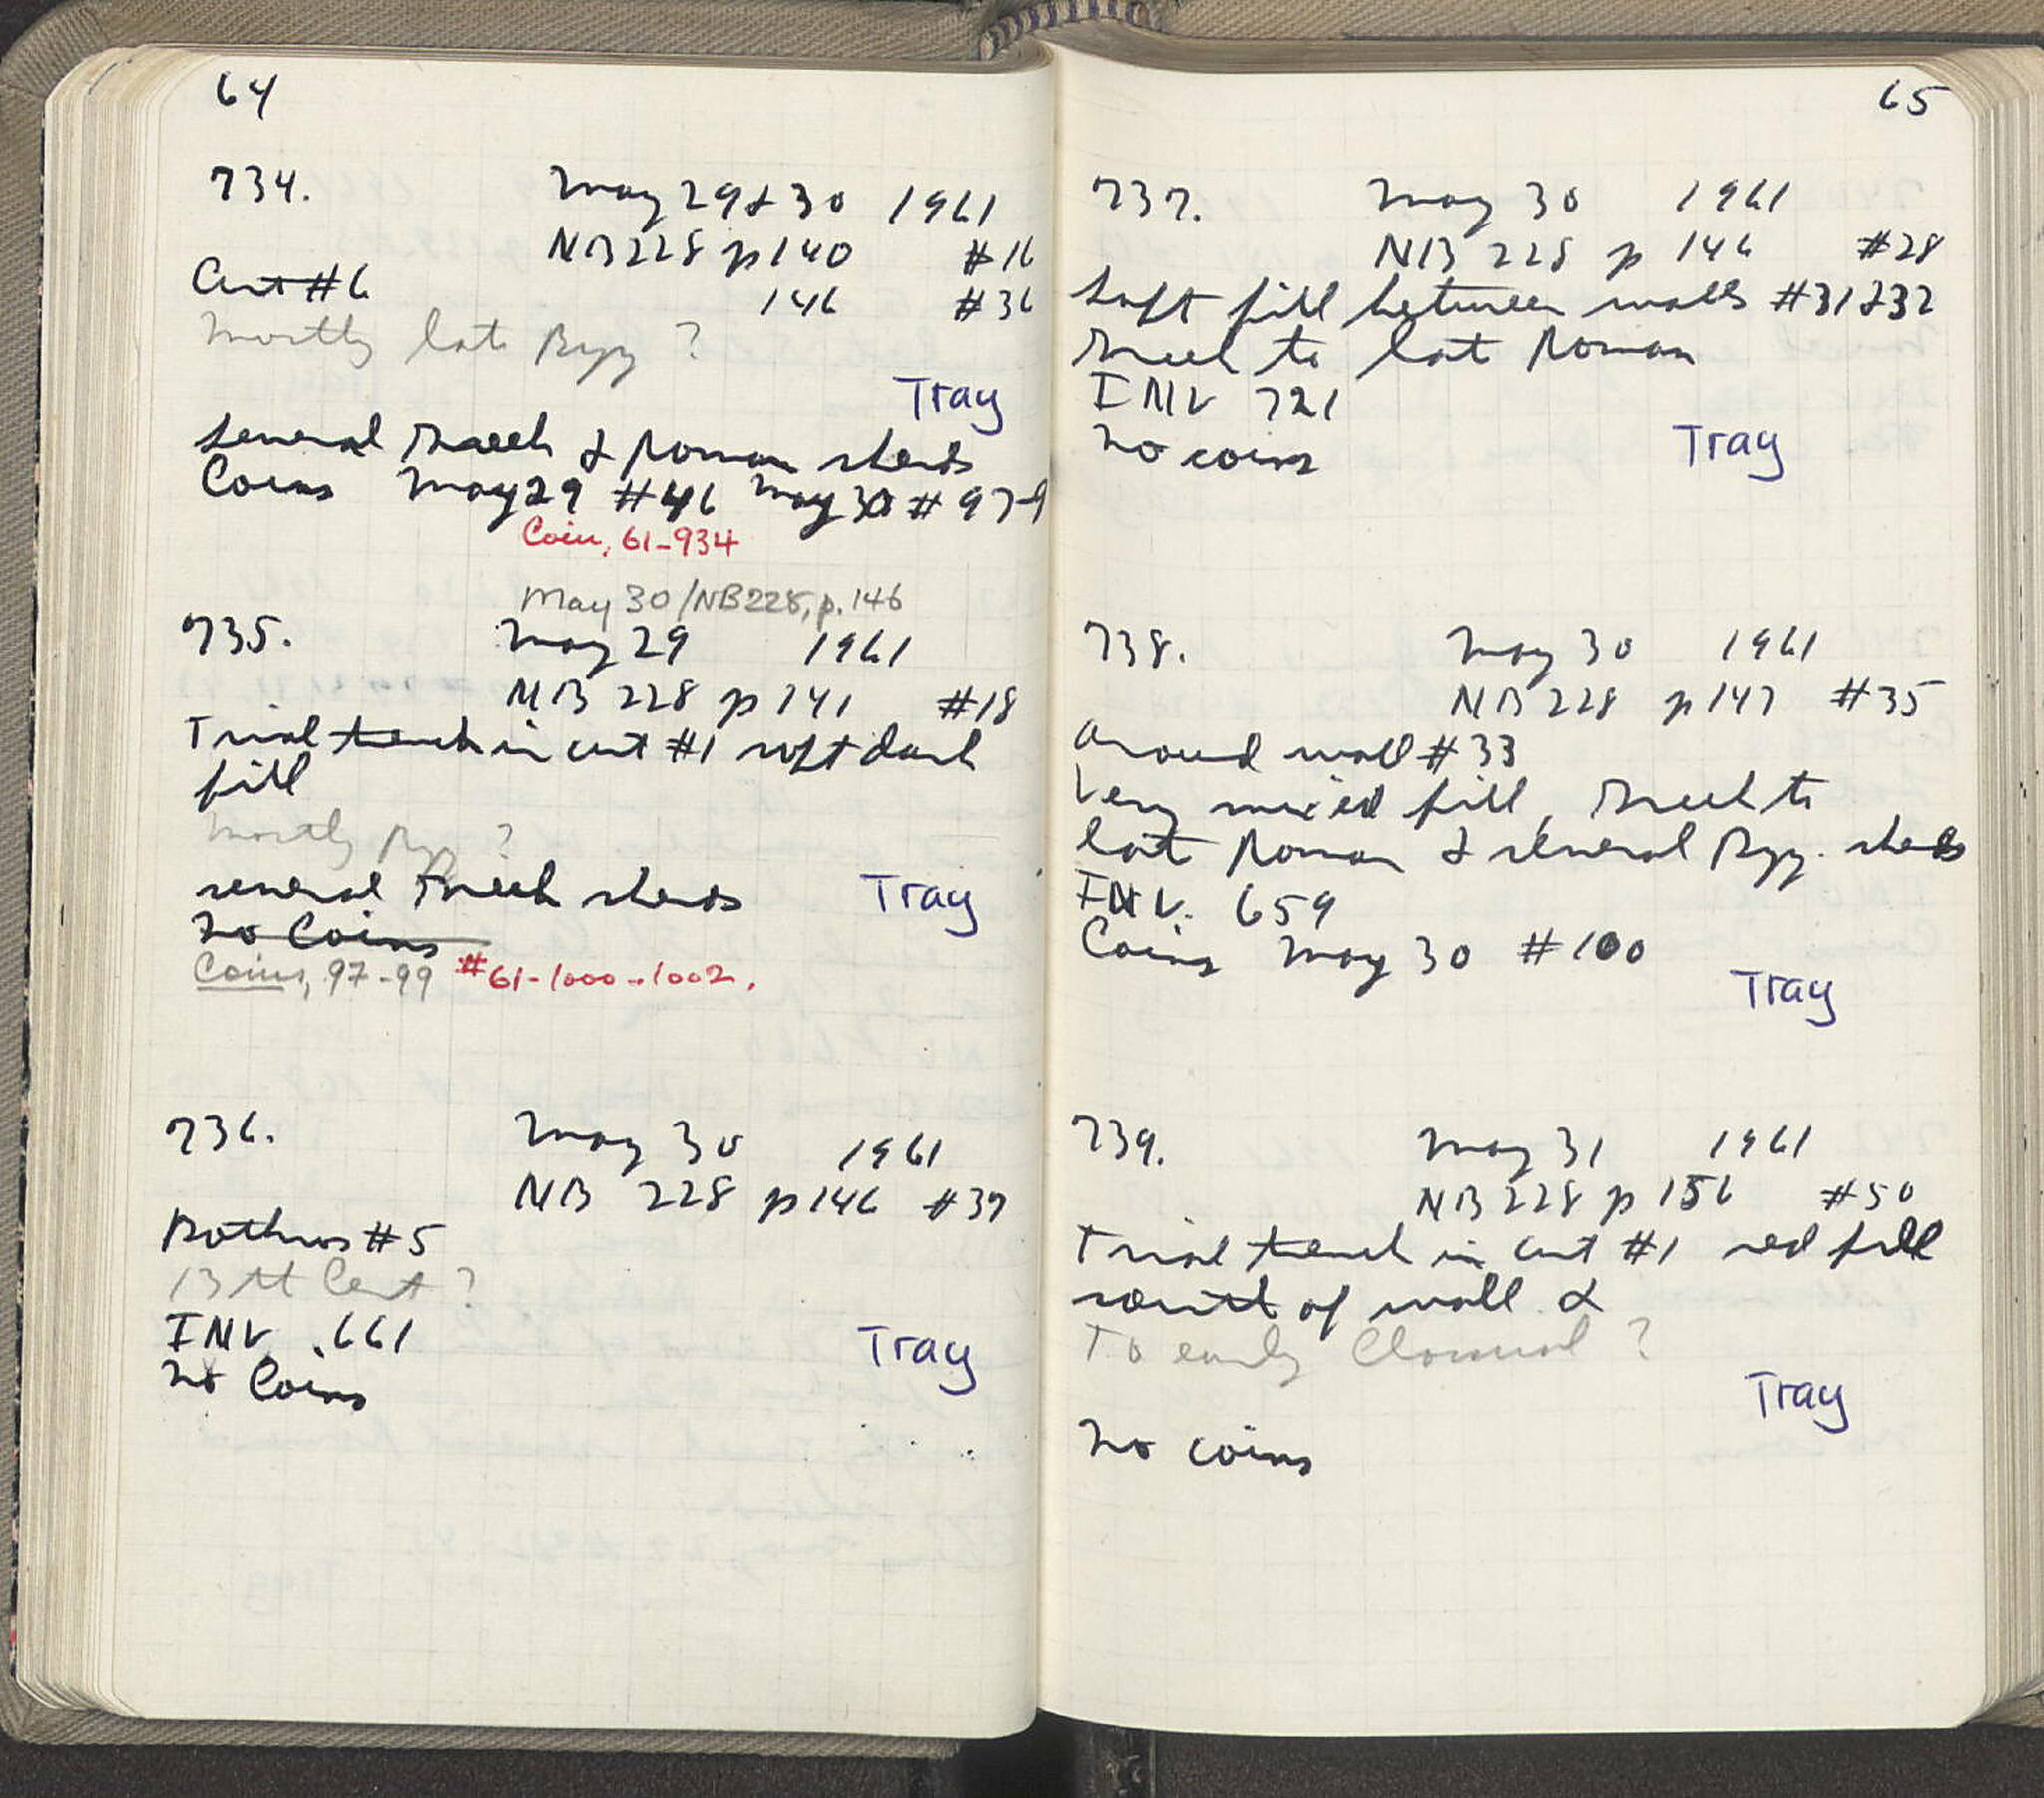 64
734. May 29 & 30 1961
NB 228 p 140 #16
Cut #6 146 #36
Mostly late Byz ?
Tray
Several Greek & Roman sherds
Coins May 29 #46 May 30 # 97-9
Coin, 61-934
May 30/NB 228, p. 146
735. May 29 1961
NB 228 p 141 #18
Trial trench in cut #1 soft dark
fill
Mostly Byz ?
several Greek sherds Tray
No Coins
Coins, 97-99 #61-1000-1002.
736. May 30 1961
NB 228 p 146 #39
Bothros #5
13th Cent ?
INV. 661 Tray
No Coins
65
737. May 30 1961
NB 228 p 146 #28
Soft fill between walls #31 & 32
Greek to late Roman
INV 721
No coins Tray
738. May 30 1961
NB 228 p 147 #35
Around wall #33
Very mixed fill, Greek to
late Roman & several Byz. sherds
INV. 659
Coins May 30 #100
Tray
739. May 31 1961
NB 228 p 156 #50
Trial trench in cut #1 red fill
south of wall α
To early Classical ?
Tray
No coins